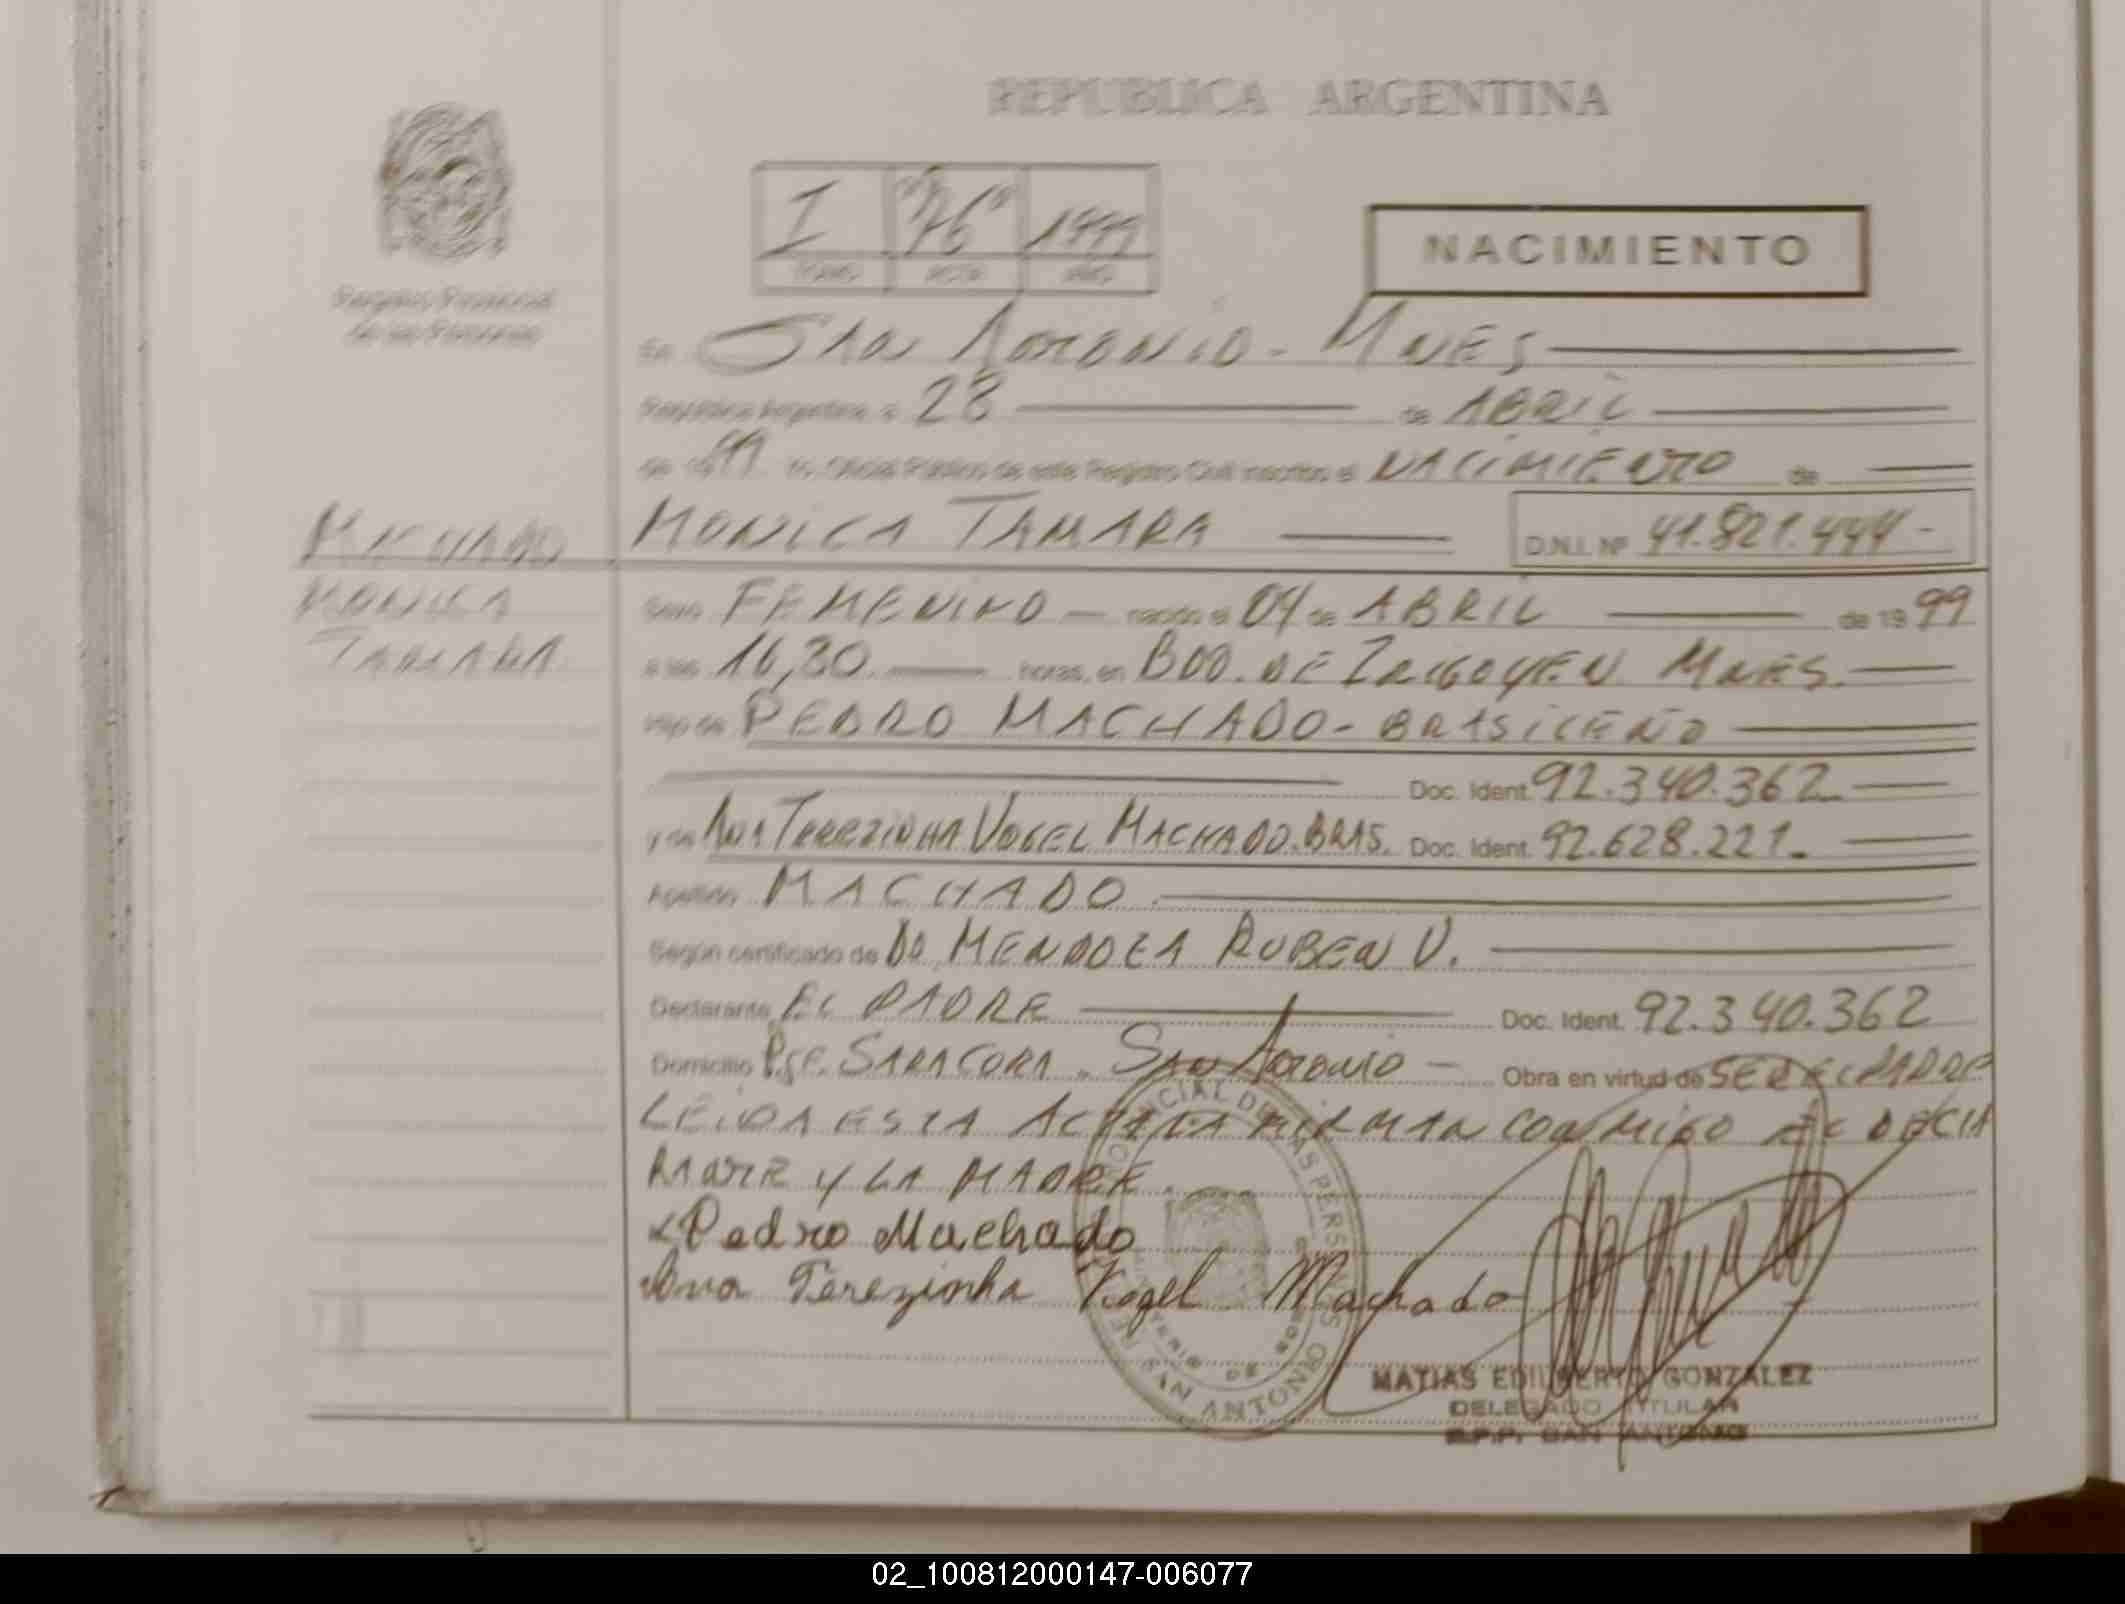 REPUBLICA ARGENTINA
Registro Provincial
de las Personas
I 76 1999
TOMO ACTA AÑO
NACIMIENTO
En SAN ANTONIO - MNES
República Argentina, a 28 de ABRIL
de 1999 Yo, Oficial Público de este Registro Civil inscribo el NACIMIENTO de
MACHADO
MONICA
TAMARA
MONICA TAMARA
D.N.I. Nº 41.821.444-
Sexo FEMENINO nacido el 04 de ABRIL de 1999
a las 16,30 horas, en BDO. DE IRIGOYEN MNES.
Hijo de PEDRO MACHADO - BRASILEÑO
Doc. Ident. 92.340.362
y de ANA TEREZINHA VOGEL MACHADO. BRAS. Doc. Ident. 92.628.221.
Apellido MACHADO
Según certificado de DR MENDOZA RUBEN V.
Declarante EL PADRE Doc. Ident. 92.340.362
Domicilio Pje. SARACORA. SAN ANTONIO - Obra en virtud de SER EL PADRE
LEIDA ESTA ACTA LA FIRMAN CONMIGO EL DECLA
RANTE Y LA MADRE.
Pedro Machado
Ana Terezinha Vogel Machado
PROVINCIAL DE LAS PERSONAS
SAN ANTONIO
MATIAS EDILBERTO GONZALEZ
DELEGADO TITULAR
R.P.P. SAN ANTONIO
02_100812000147-006077